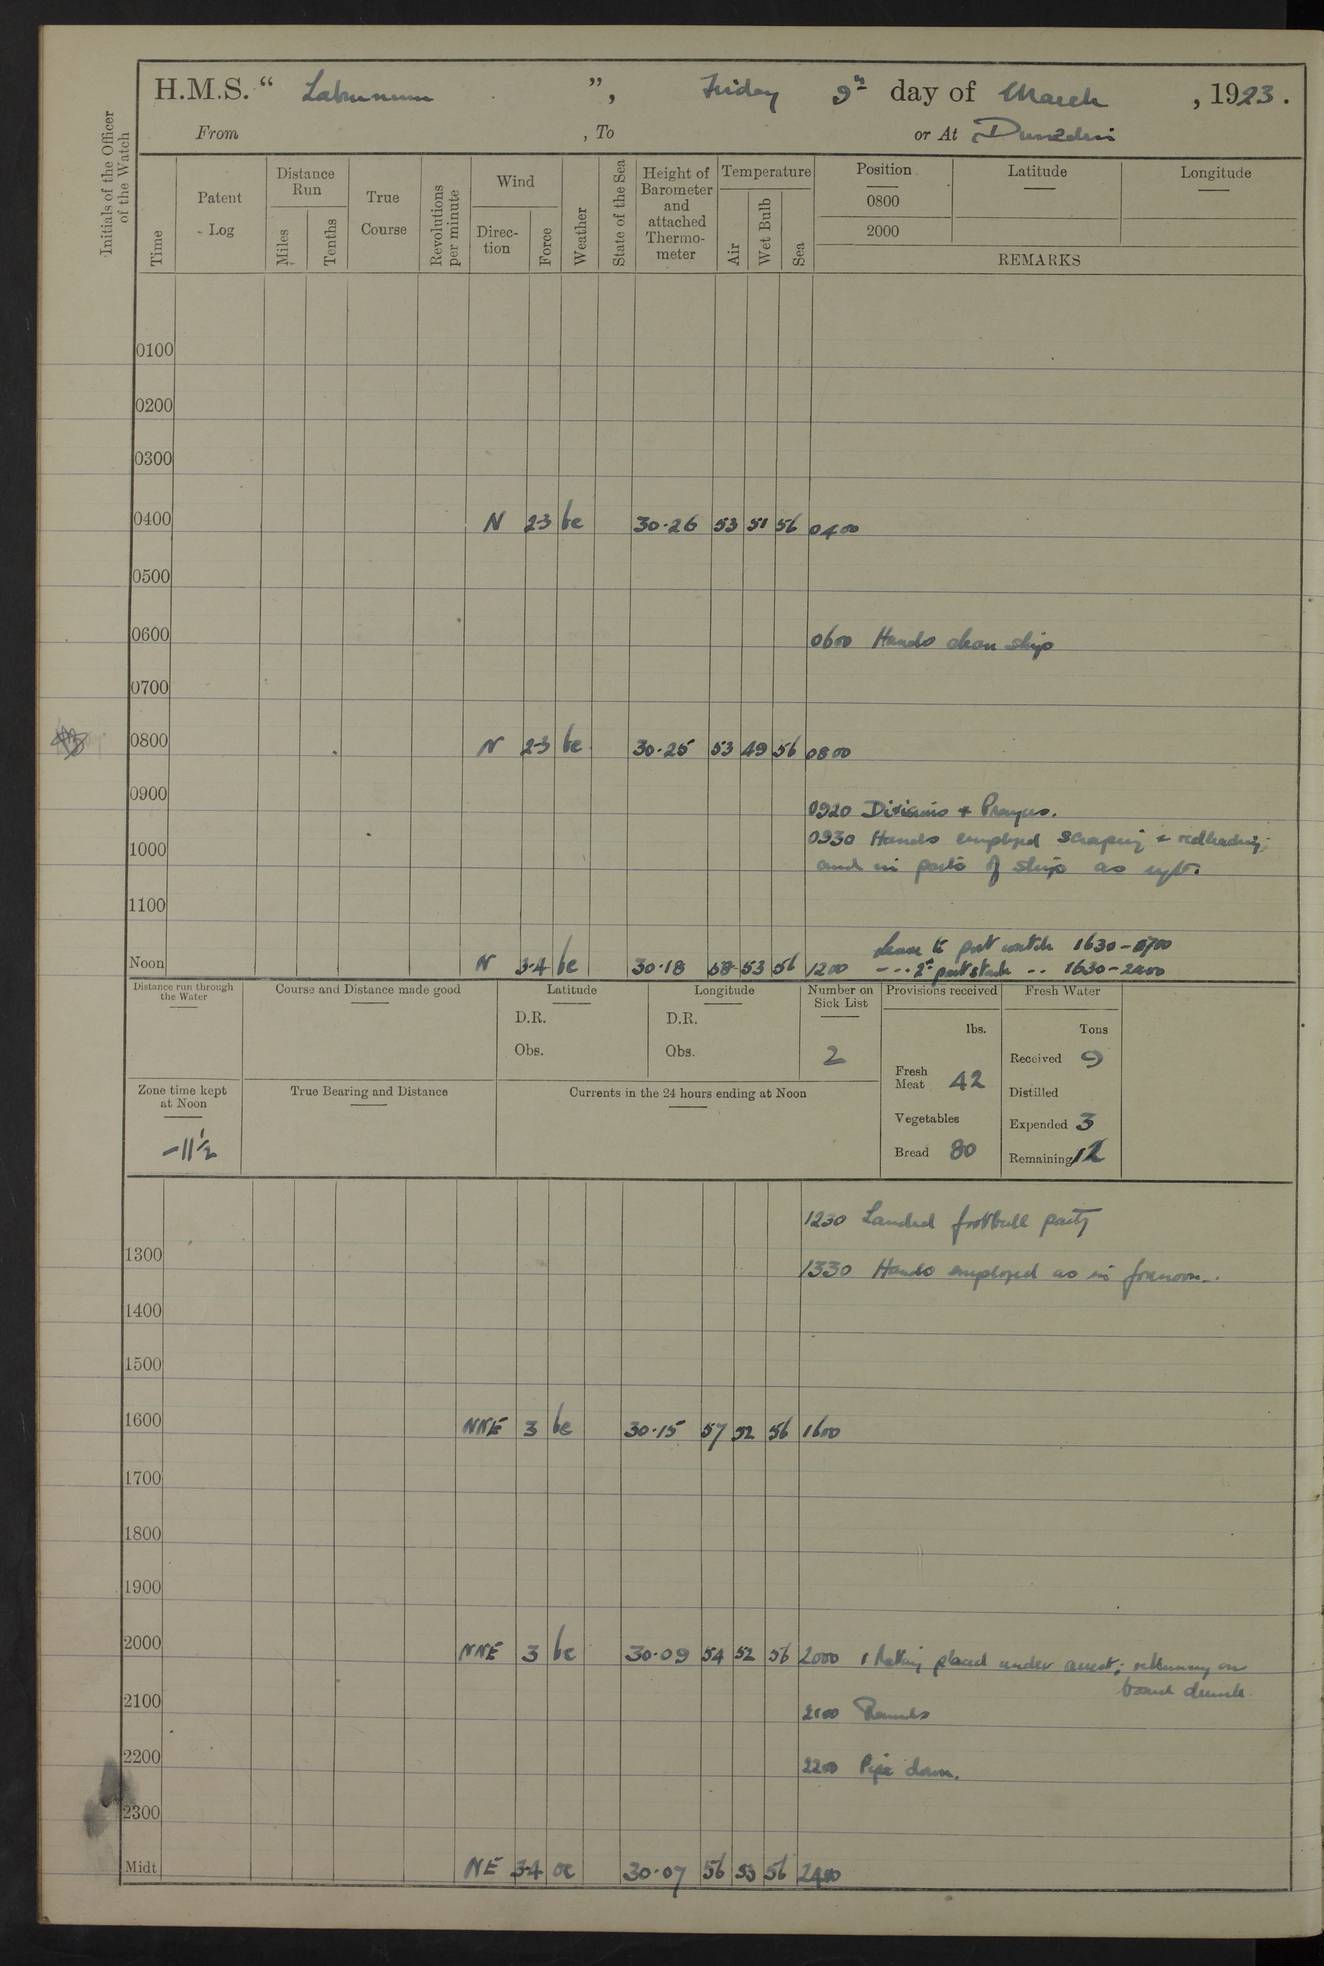 H.M.S. “ Laburnum ”, Friday 9th day of March, 1923.
From , To or At Dunedin
Initials of the Officer of the Watch
Time
Patent Log
Distance Run
Miles
Tenths
True Course
Revolutions per minute
Wind
Direction
Force
Weather
State of the Sea
Height of Barometer and attached Thermometer
Temperature
Air
Wet Bulb
Sea
Position
0800
2000
Latitude
Longitude
REMARKS
0100
0200
0300
0400 N 2-3 bc 30.26 53 51 56 0400
0500
0600 0600 Hands clean ship
0700
0800 N 2-3 bc 30.25 53 49 56 0800
0900
0920 Divisions + Prayers.
0930 Hands employed scraping + redleading;
1000 and in parts of ship as
1100
Leave to port watch 1630-0700
Noon N 3-4 bc 30.18 58 53 56 1200 - - - 2nd part - - 1630-2400
Distance run through the Water
Course and Distance made good
Latitude
D.R.
Obs.
Longitude
D.R.
Obs.
Number on Sick List
2
Provisions received
lbs.
Fresh Meat 42
Vegetables
Bread 80
Fresh Water
Tons
Received 9
Distilled
Expended 3
Remaining 12
Zone time kept at Noon
-11½
True Bearing and Distance
Currents in the 24 hours ending at Noon
1230 Landed football party
1300
1330 Hands employed as in forenoon.
1400
1500
1600 NNE 3 bc 30.15 57 52 56 1600
1700
1800
1900
2000 NNE 3 bc 30.09 54 52 56 2000 1 Rating placed under arrest; returning on
board drunk.
2100 2100 Rounds
2200 2200 Pipe down.
2300
Midt NE 3-4 oc 30.07 56 53 56 2400